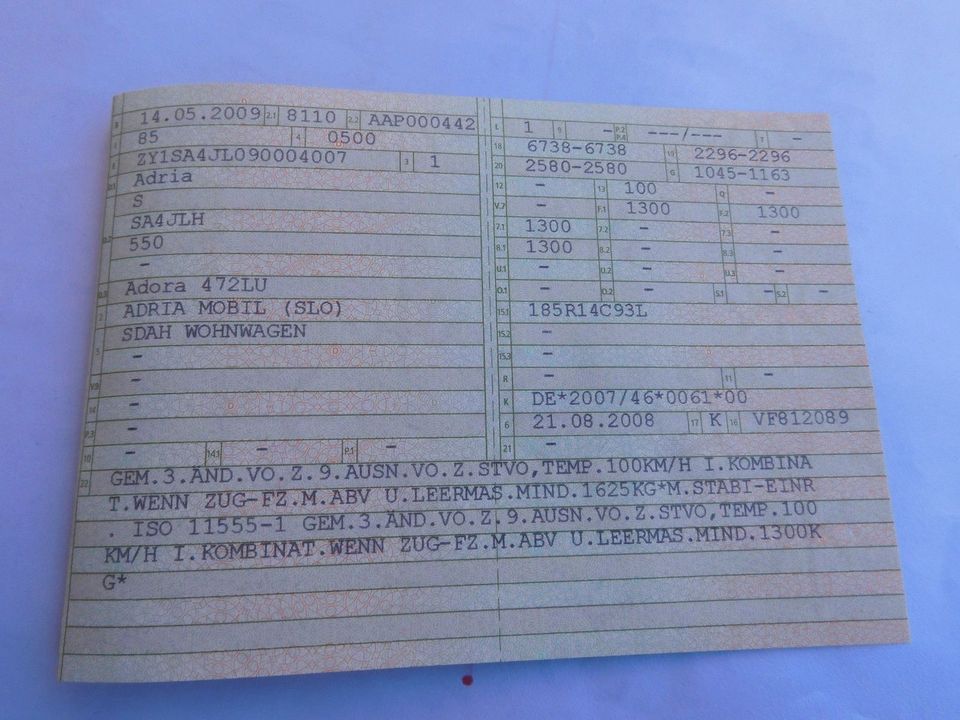 B 14.05.2009 2.1 8110 2.2 AAP000442
J 85 4 0500
E ZY1SA4JL090004007 3 1
D.1 Adria
S
SA4JLH
D.2 550
-
D.3 Adora 472LU
2 ADRIA MOBIL (SLO)
SDAH WOHNWAGEN
5 -
V.9 -
14 -
P.3 -
10 - 14.1 - P.1 -
L 1 9 - P.2 P.4 ---/--- T -
18 6738-6738 19 2296-2296
20 2580-2580 G 1045-1163
12 - 13 100 Q -
V.7 - F.1 1300 F.2 1300
7.1 1300 7.2 - 7.3 -
8.1 1300 8.2 - 8.3 -
U.1 - U.2 - U.3 -
O.1 - O.2 - S.1 - S.2 -
15.1 185R14C93L
15.2 -
15.3 -
R - 11 -
K DE*2007/46*0061*00
6 21.08.2008 17 K 16 VF812089
21 -
22 GEM.3.ÄND.VO.Z.9.AUSN.VO.Z.STVO,TEMP.100KM/H I.KOMBINA
T.WENN ZUG-FZ.M.ABV U.LEERMAS.MIND.1625KG*M.STABI-EINR
. ISO 11555-1 GEM.3.ÄND.VO.Z.9.AUSN.VO.Z.STVO,TEMP.100
KM/H I.KOMBINAT.WENN ZUG-FZ.M.ABV U.LEERMAS.MIND.1300K
G*